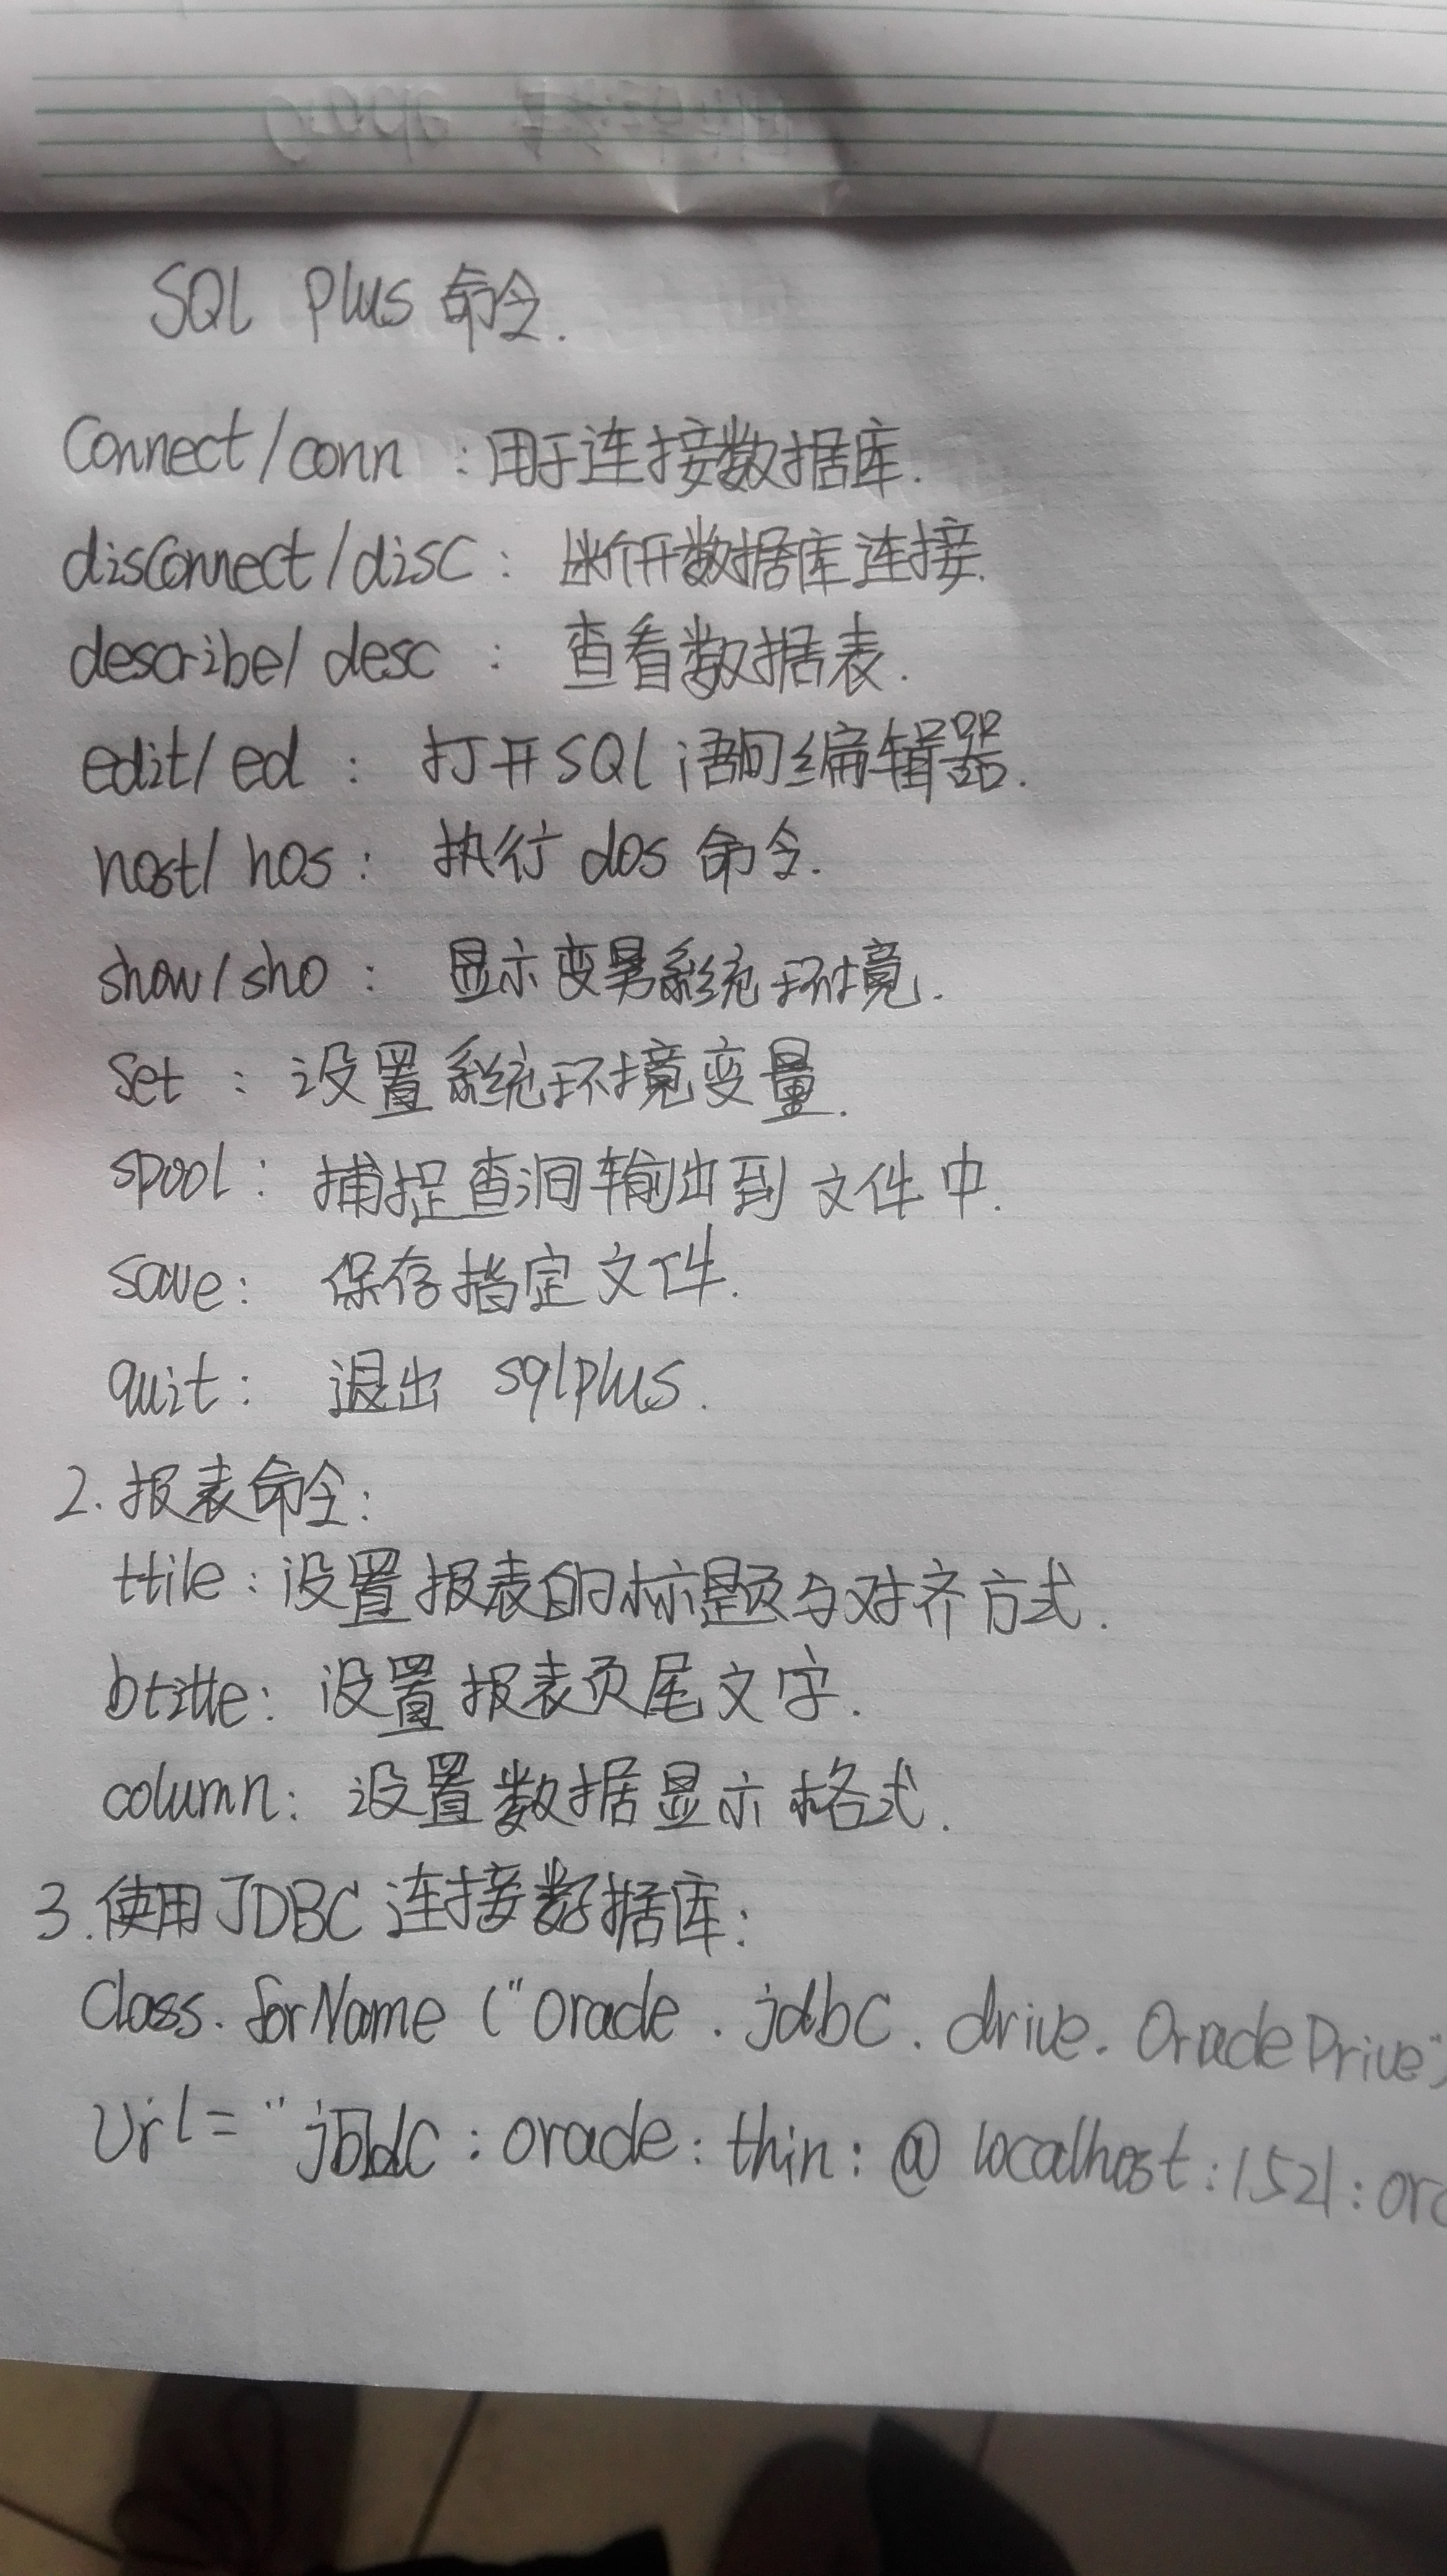 SQL Plus 命令.
Connect/conn :用于连接数据库.
disconnect/disc: 断开数据库连接.
describe/ desc : 查看数据表.
edit/ ed : 打开SQL语句编辑器.
host/ hos: 执行 dos 命令.
show/sho : 显示变量系统环境.
set : 设置系统环境变量.
spool: 捕捉查询输出到文件中.
save: 保存指定文件.
quit: 退出 sqlplus.
2.报表命令:
ttile:设置报表的标题与对齐方式.
btitle: 设置报表页尾文字.
column: 设置数据显示格式.
3.使用JDBC 连接数据库:
Class.forName ("oracle.jdbc.drive.OracleDrive")
Url="jdbc:oracle:thin:@localhost:1521:orc